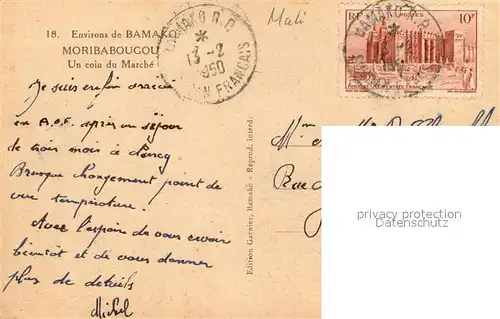 18. Environs de BAMAKO
MORIBABOUGOU
Un coin du Marché
BAMAKO R.P.
13-2
1950
SOUDAN FRANCAIS
Mali
RF POSTES 10F
BAMAKO R.P.
AFRIQUE OCCIDENTALE FRANÇAISE
Je suis enfin
en A.O.F. après un séjour
de trois mois à
Brusque changement point de
vue température.
Avec l'espoir de vous revoir
bientôt et de vous donner
plus de details
Michel
Edition Garnier, Bamako - Reprod. interd.
Mme
Rue
privacy protection
privacy protection